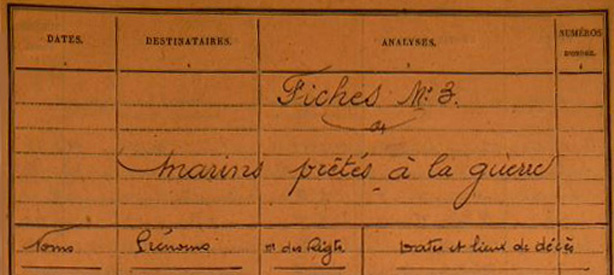 DATES. DESTINATAIRES. ANALYSES. NUMÉROS D'ORDRE.
Fiches N° 3.
marins prêtés à la guerre
Noms Prénoms n° des Régts Dates et lieux de décès